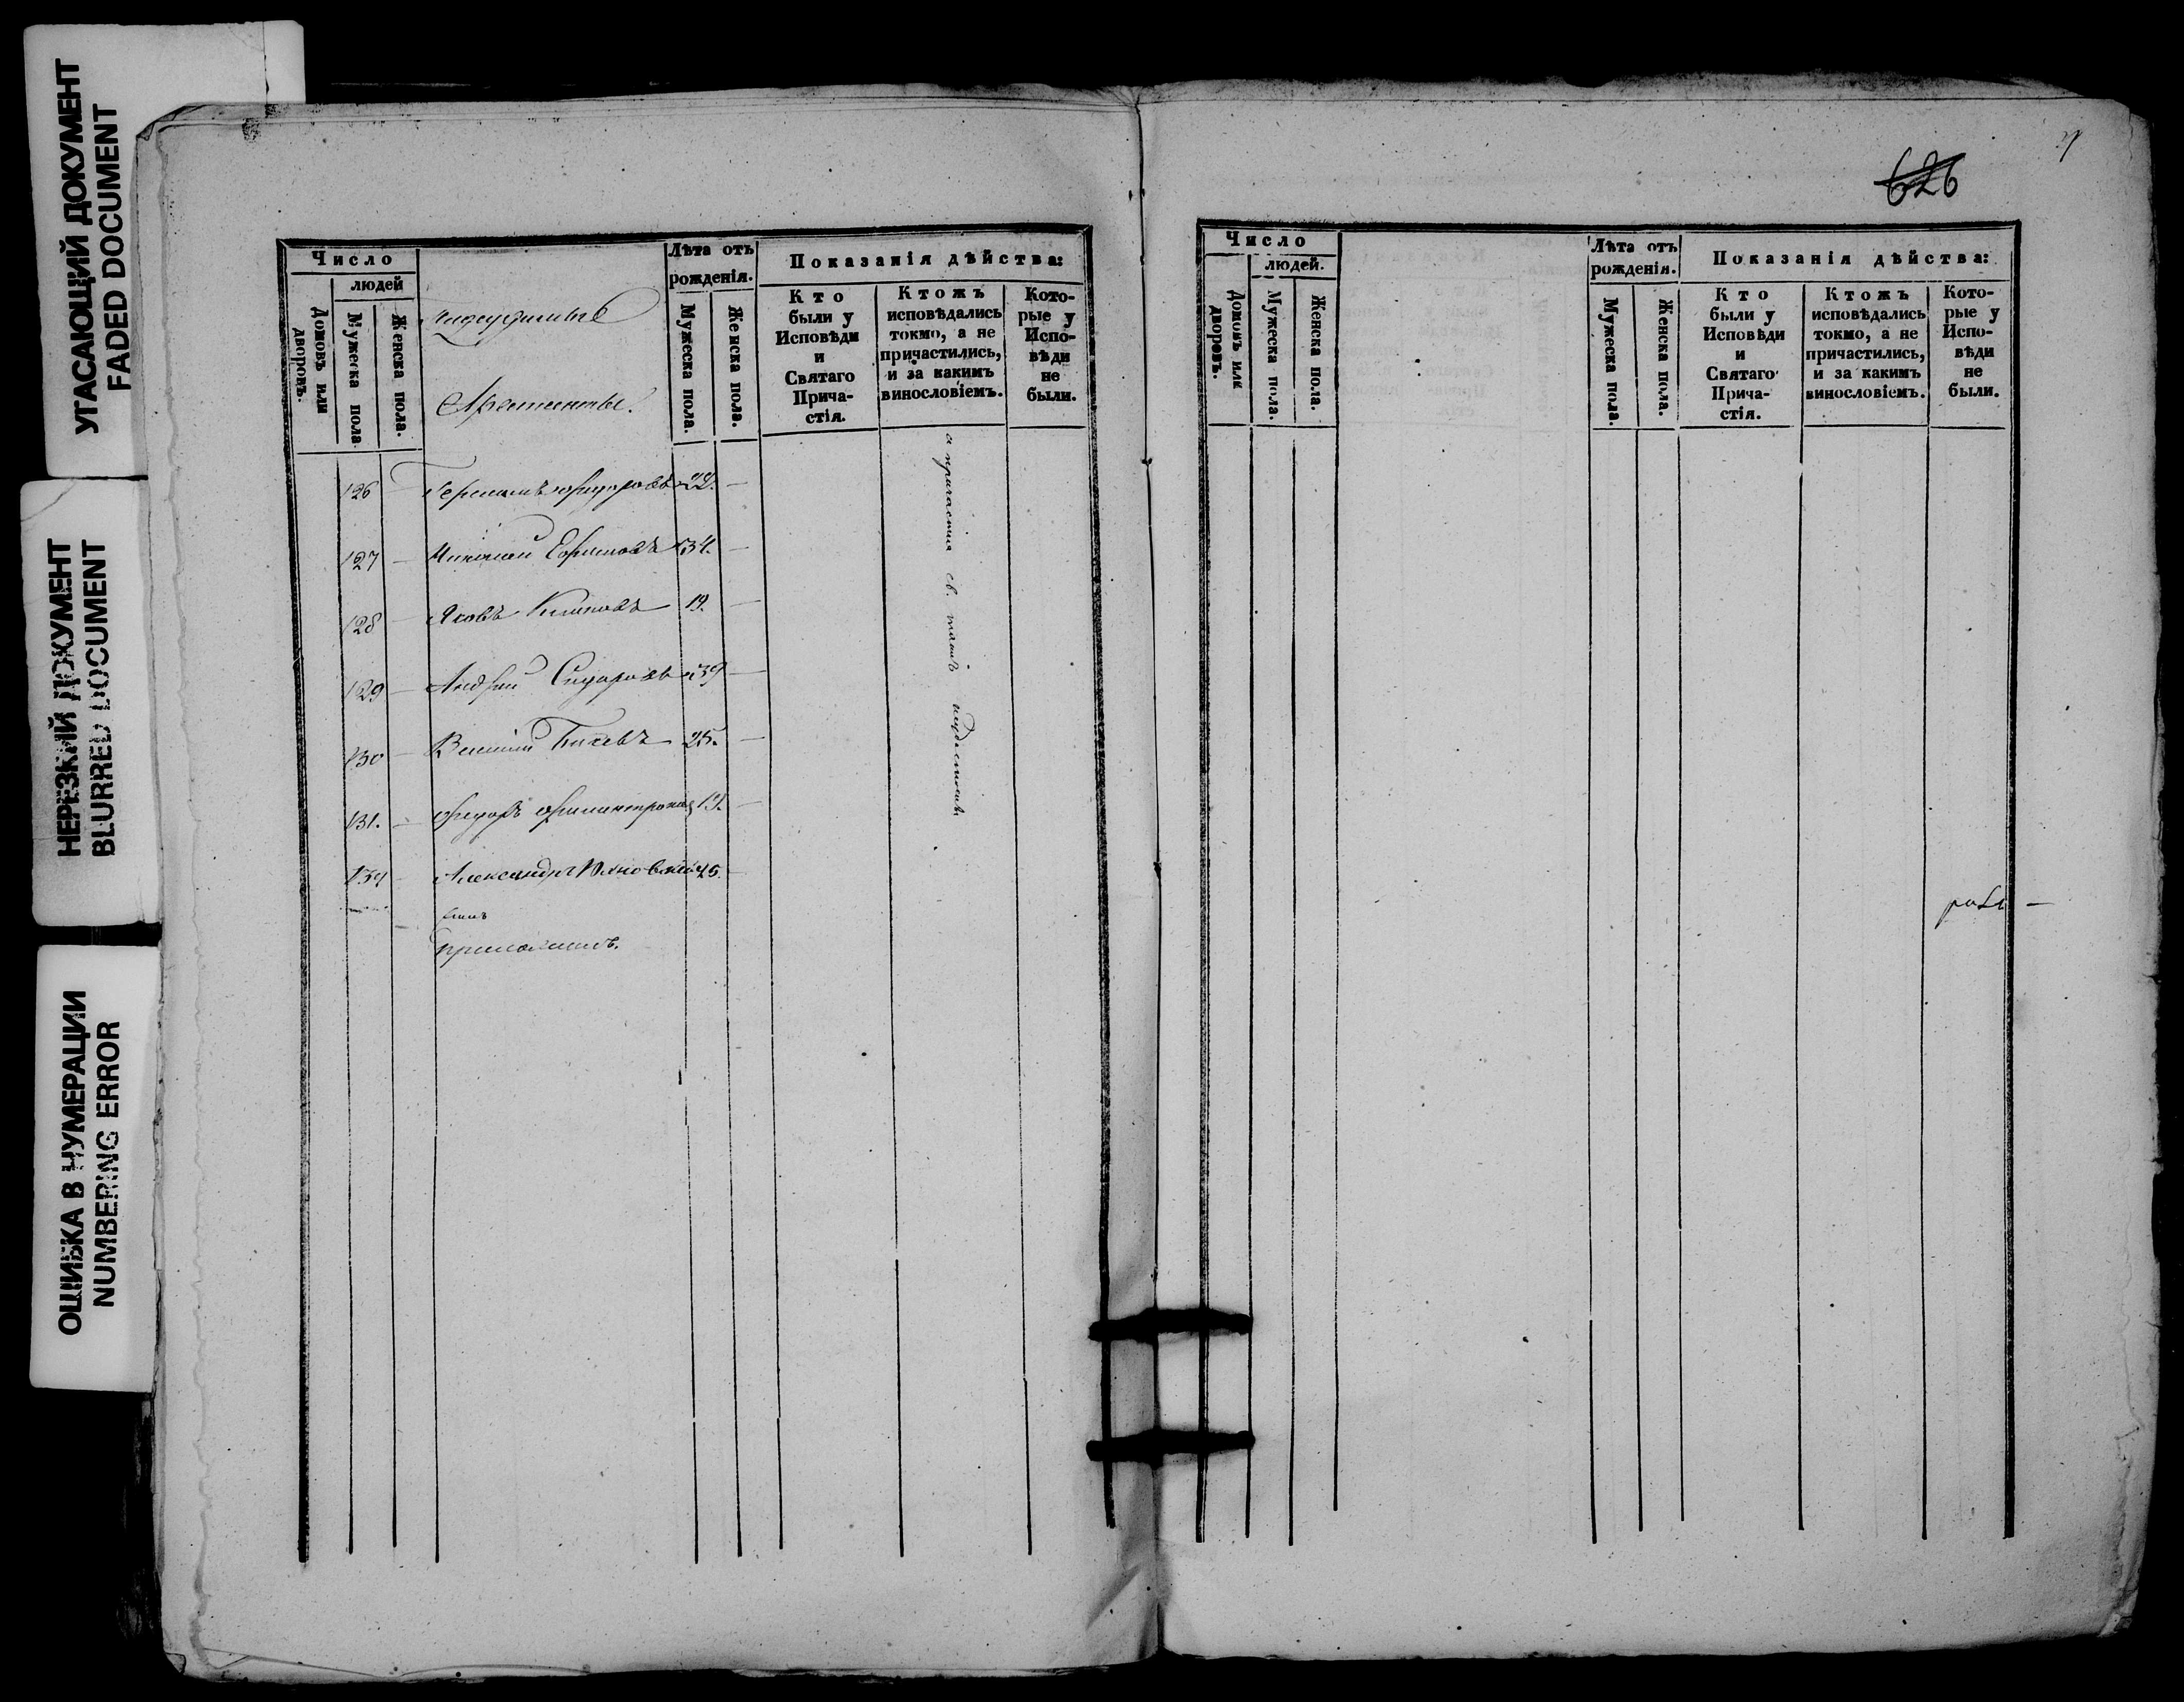 УГАСАЮЩИЙ ДОКУМЕНТ
FADED DOCUMENT
НЕРЕЗКИЙ ДОКУМЕНТ
BLURRED DOCUMENT
ОШИБКА В НУМЕРАЦИИ
NUMBERING ERROR
Число
людей
Домовъ или дворовъ.
Мужеска пола
Женска пола.
Арестанты.
Лѣта отъ рожденія.
Мужеска пола.
Женска пола.
Показанія дѣйства:
Кто были у Исповѣди и Святаго Причастія.
Ктожъ исповѣдались токмо, а не причастились, и за какимъ винословіемъ.
Которые у Исповѣди не были.
126 — 22. —
127 — 34. —
128 — Яковъ 19. —
129 — Андрей Сидоровъ 39 —
130 — Василій 25. —
131. — Федоръ 19. —
Александръ 45. —
а причастія св. таинъ
626
Число
людей.
Домовъ или дворовъ.
Мужеска пола.
Женска пола.
Лѣта отъ рожденія.
Мужеска пола.
Женска пола.
Показанія дѣйства:
Кто были у Исповѣди и Святаго Причастія.
Ктожъ исповѣдались токмо, а не причастились, и за какимъ винословіемъ.
Которые у Исповѣди не были.